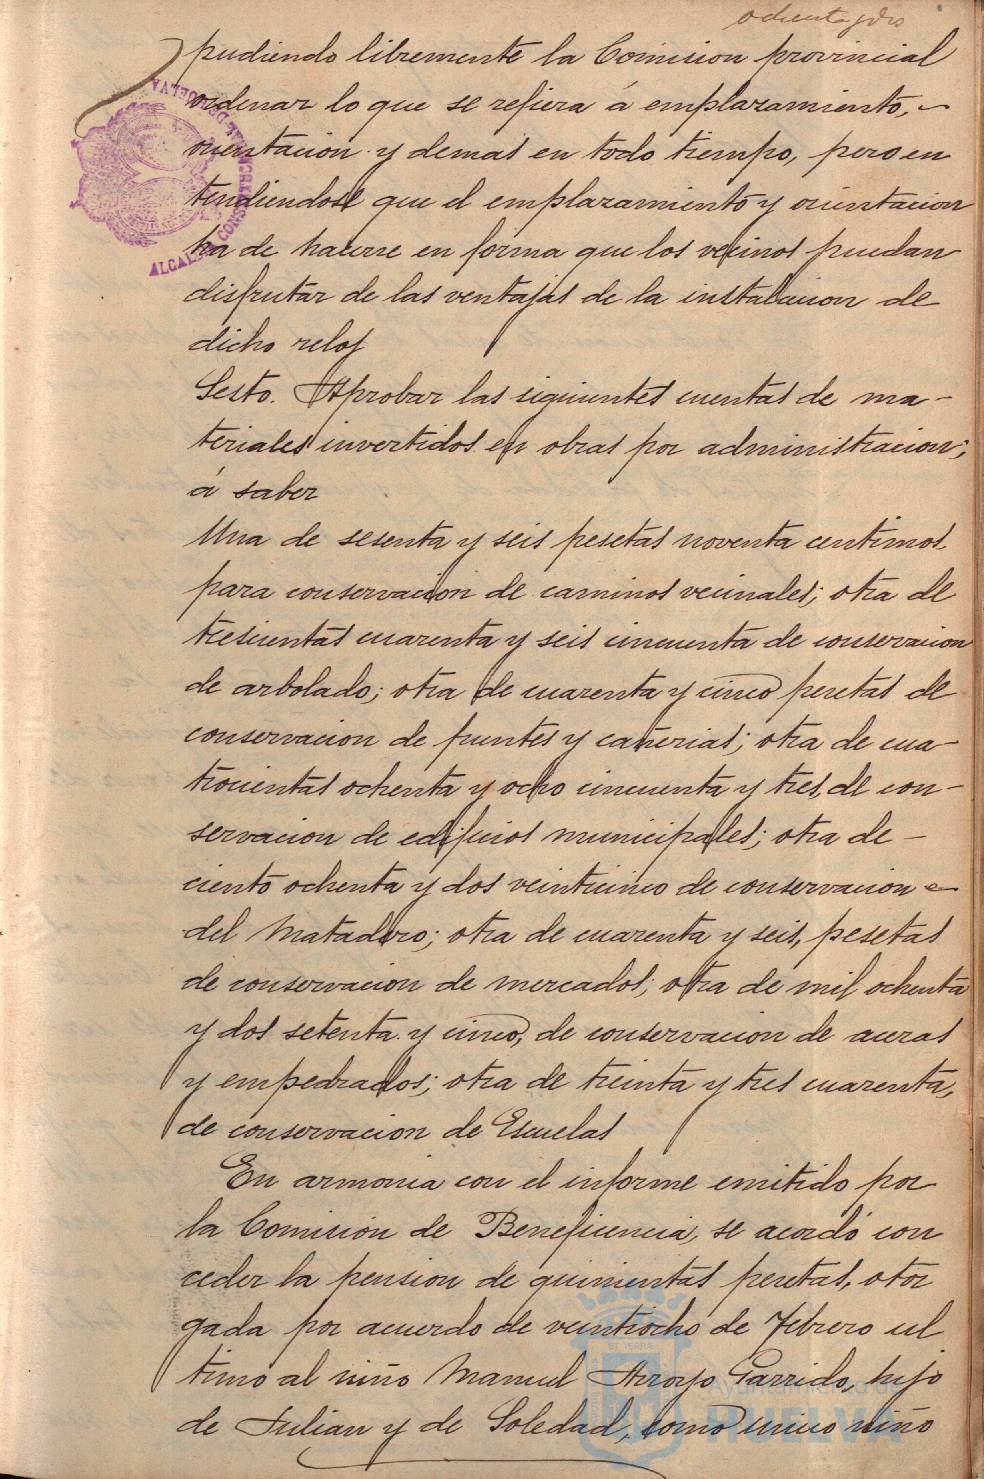 ochenta y dos
pudiendo libremente la Comision provincial
ordenar lo que se refiera á emplazamiento,
orientacion y demas en todo tiempo, pero en
tendiendose que el emplazamiento y orientacion
ha de hacerse en forma que los vecinos puedan
disfrutar de las ventajas de la instalacion de
dicho reloj
Sesto. Aprobar las siguientes cuentas de ma-
teriales invertidos en obras por administracion;
á saber
Una de sesenta y seis pesetas noventa centimos
para conservacion de caminos vecinales; otra de
trescientas cuarenta y seis cincuenta de conservacion
de arbolado; otra de cuarenta y cinco pesetas de
conservacion de fuentes y cañerias; otra de cua-
trocientas ochenta y ocho cincuenta y tres, de con-
servacion de edificios municipales; otra de
ciento ochenta y dos veinticinco de conservacion
del Matadero; otra de cuarenta y seis, pesetas
de conservacion de mercados; otra de mil ochenta
y dos setenta y cinco, de conservacion de aceras
y empedrados; otra de treinta y tres cuarenta,
de conservacion de Escuelas
En armonia con el informe emitido por
la Comisión de Beneficencia, se acordó con
ceder la pension de quinientas pesetas, otor
gada por acuerdo de veintiocho de Febrero ul
timo al niño Manuel Arroyo Garrido, hijo
de Julian y de Soledad, como unico niño
ALCALDIA CONSTITUCIONAL DE HUELVA
Ayuntamiento de
HUELVA